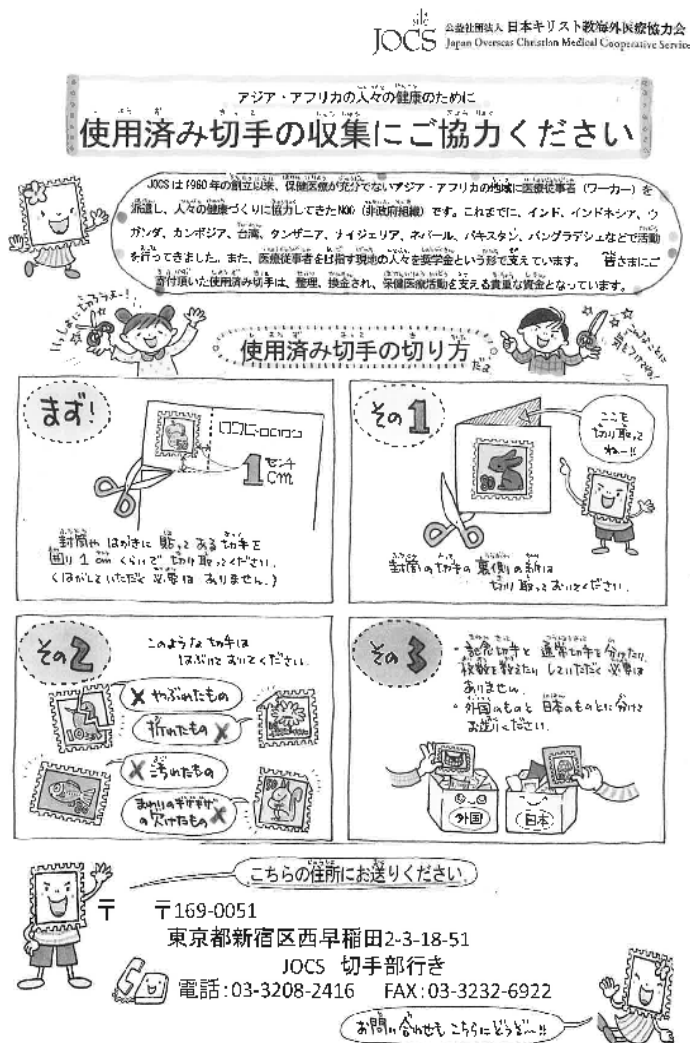 JOCS 公益社団法人 日本キリスト教海外医療協力会
Japan Overseas Christian Medical Cooperative Service
アジア・アフリカの人々の健康のために
使用済み切手の収集にご協力ください
JOCSは1960年の創立以来、保健医療が充分でないアジア・アフリカの地域に医療従事者（ワーカー）を
派遣し、人々の健康づくりに協力してきたNGO（非政府組織）です。これまでに、インド、インドネシア、ウ
ガンダ、カンボジア、台湾、タンザニア、ナイジェリア、ネパール、パキスタン、バングラデシュなどで活動
を行ってきました。また、医療従事者を目指す現地の人々を奨学金という形で支えています。 皆さまにご
寄付頂いた使用済み切手は、整理、換金され、保健医療活動を支える貴重な資金となっています。
いっしょに切ろうよー!
使用済み切手の切り方だよ
まず!
1センチcm
封筒やはがきに貼ってある切手を
囲り1cmくらいで切り取ってください。
(はがしていただく必要はありません。)
その1
ここも
切り取って
ねー!!
封筒の切手の裏側の紙は
切り取っておいてください。
その2
このような切手は
はぶいておいてください。
×やぶれたもの
折れたもの×
×汚れたもの
まわりのギザギザ
の欠けたもの×
その3
・記念切手と通常切手を分けたり、
枚数を数えたりしていただく必要は
ありません。
・外国のものと日本のものとに分けて
お送りください。
外国
日本
こちらの住所にお送りください
〒 〒169-0051
東京都新宿区西早稲田2-3-18-51
JOCS 切手部行き
電話:03-3208-2416 FAX:03-3232-6922
お問い合わせもこちらにどうぞ〜!!